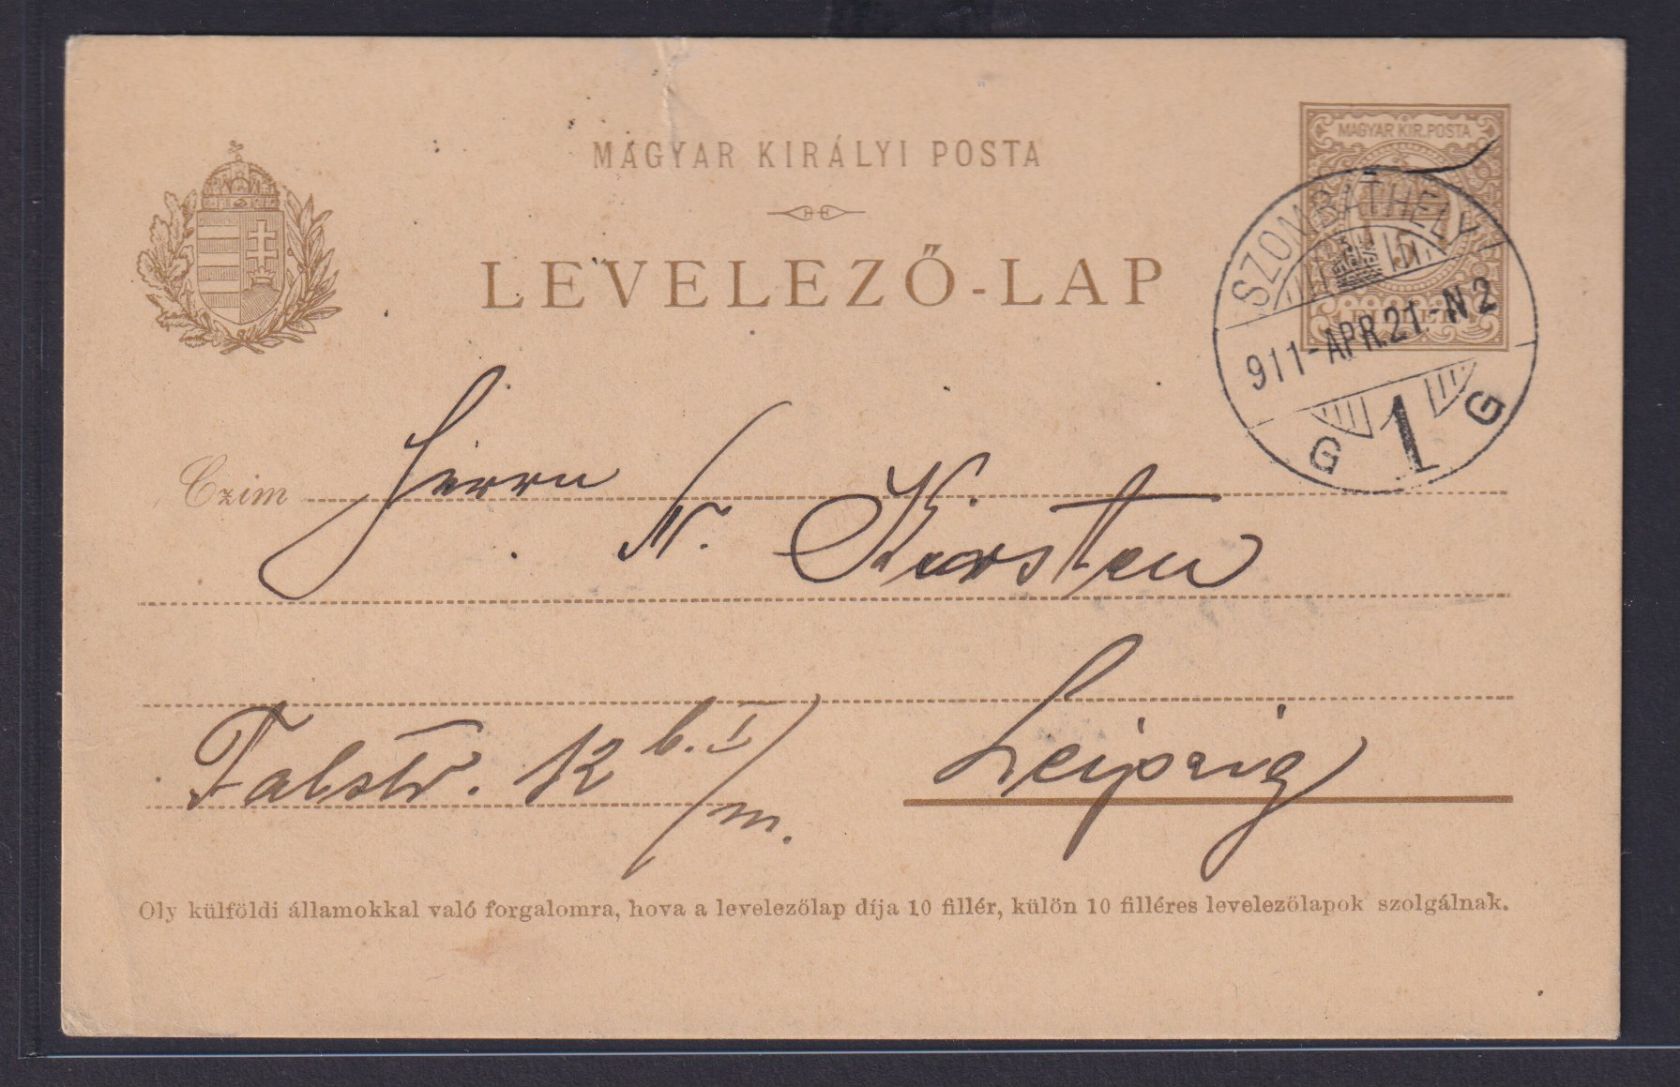 MAGYAR KIRÁLYI POSTA
MAGYAR KIR. POSTA
LEVELEZŐ-LAP
SZOMBATHELY
911-APR.21-N2
G 1 G
Czim
Herrn
N. Kirsten
Talstr. 12 b. I/m.
Leipzig
Oly külföldi államokkal való forgalomra, hova a levelezőlap díja 10 fillér, külön 10 filléres levelezőlapok szolgálnak.